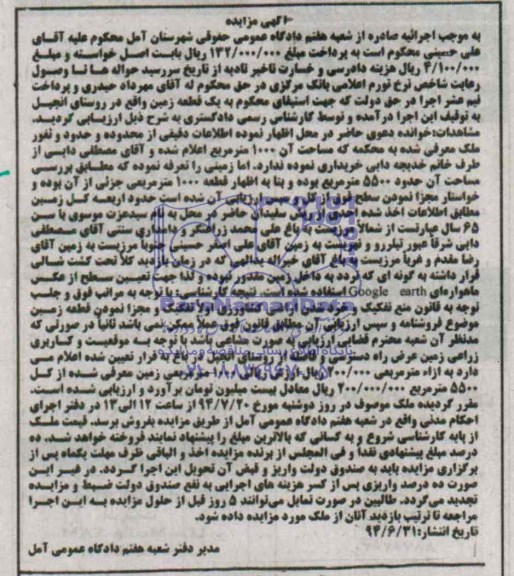 آگهی مزایده
به موجب اجرائیه صادره از شعبه هفتم دادگاه عمومی حقوقی شهرستان آمل محکوم علیه آقـای
علی حسینی محکوم است به پرداخت مبلغ ۱۳۲/۰۰۰/۰۰۰ ریال بابت اصل خواسته و مبلغ
۴/۱۰۰/۰۰۰ ریال هزینه دادرسی و خسارت تاخیر تادیه از تاریخ سررسید حواله ها تا وصول
رعایت شاخص نرخ تورم اعلامی بانک مرکزی در حق محکوم له آقای مهرداد حیدری و پرداخت
نیم عشر اجرا در حق دولت که جهت استیفای محکوم به یک قطعه زمین واقع در روستای انجیل
به توقیف این اجرا درآمده و توسط کارشناس رسمی دادگستری به شرح ذیل ارزیـابی گـردید.
مشاهدات: خوانده دعوی حاضر در محل اظهار نموده اطلاعات دقیقی از محدوده و حدود و ثغور
ملک معرفی شده به محکمه که مساحت آن ۱۰۰۰ مترمربع اعلام شده و آقای مصطفی دایی از
طرف خانم خدیجه دایی خریداری نموده ندارد. اما زمینی را تعرفه نموده که مطـابق بررسـی
مساحت آن حدود ۵۵۰۰ مترمربع بوده و بنا به اظهار قطعه ۱۰۰۰ مترمربعی جزئی از آن بوده و
خواستار مجزا نمودن سطح فوق از کل زمین و سپس ارزیابی آن شده است حدود اربعـه کل زمـین
مطابق اطلاعات اخذ شده از احدی از ریش سفیدان حاضر در محل به نام سیدعزت موسوی با سـن
۶۵ سال عبارتست از شمالا مرزیست به باغ علی محمد زراعتگر و آبیاری سنتی آقای مـصطفی
دایی شرقا عبور تیلررو و مرزیست به زمین آقای علی اصغر حسینی جنوبا مرزیست به زمین آقای
رضا مقدم و غربا مرزیست به باغ آقای خیراله بداللهی که در زمان بازدید کلا تحت کشت شـالی
قرار داشته به گونه ای که تردد به داخل زمین مقدور نبوده و لذا جهت تعیین سـطح از عکس
ماهواره‌ای Google earth استفاده شده است. نتیجه کارشناسی: با توجه به مراتب فوق و جلـب
توجه به قانون منع تفکیک و خرد شدن اراضی کشاورزی اولا تفکیک و مجزا نمودن قطعه زمـین
موضوع فروشنامه و سپس ارزیابی آن مطابق قانون فوق عملا ممکن نمی باشد ثانیا در صورتی که
مدنظر آن شعبه محترم قضایی ارزیابی به صورت مشاعی باشد با توجه به موقعیـت و کـاربری
زراعی زمین عرض راه دسترسی و فاصله از روستای انجیل که مورد قرار تعیین شده اعلام می
دارد به ازاء مترمربعی ۲۰۰/۰۰۰ ریال ارزش ریالی ۱۰۰۰ مترمربعی زمین معرفی شده از کـل
۵۵۰۰ مترمربع ۲۰۰/۰۰۰/۰۰۰ ریال معادل بیست میلیون تومان برآورد و ارزیابی شـده اسـت.
مقرر گردیده ملک موصوف در روز دوشنبه مورخ ۹۴/۷/۲۰ از ساعت ۱۲ الی ۱۳ در دفتر اجرای
احکام مدنی واقع در شعبه هفتم دادگاه عمومی آمل از طریق مزایده بفروش برسد. قیمت ملـک
از پایه کارشناسی شروع و به کسانی که بالاترین مبلغ را پیشنهاد نمایند فروخته خواهد شـد. ده
درصد مبلغ پیشنهادی نقدا و فی المجلس از برنده مزایده اخذ و الباقی ظرف مهلت یکماه پس از
برگزاری مزایده باید به صندوق دولت واریز و قبض آن تحویل این اجرا گـردد. در غـیر ایـن
صورت ده درصد واریزی پس از کسر هزینه های اجرایی به نفع صندوق دولت ضبـط و مزایـده
تجدید می‌گردد. طالبین در صورت تمایل می‌توانند ۵ روز قبل از حلول مزایده بـه ایـن اجـرا
مراجعه تا ترتیب بازدید آنان از ملک مورد مزایده داده شود.
تاریخ انتشار: ۹۴/۶/۳۱
مدیر دفتر شعبه هفتم دادگاه عمومی آمل
ParsNamadData
پایگاه اطلاع رسانی مناقصه و مزایده